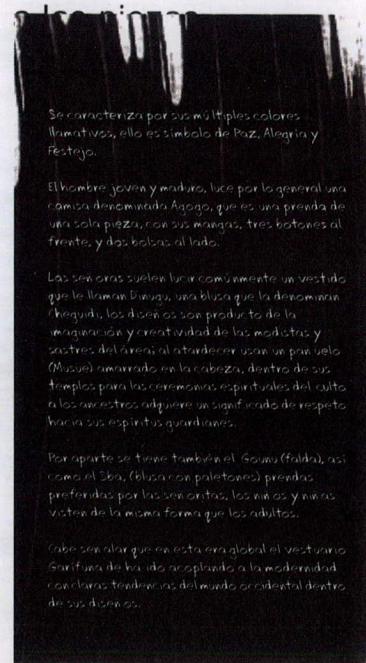 Se caracteriza por sus múltiples colores
llamativos, ello es símbolo de Paz, Alegria y
Festejo.
El hombre joven y maduro, luce por lo general una
camisa denominada Agogo, que es una prenda de
una sola pieza, con sus mangas, tres botones al
frente, y dos bolsas al lado.
Las señoras suelen lucir comúnmente un vestido
que le llaman Dinugu, una blusa que la denominan
Cheguidi, los diseños son producto de la
imaginación y creatividad de las modistas y
sastres del área; al atardecer usan un pañuelo
(Musue) amarrado en la cabeza, dentro de sus
templos para las ceremonias espirituales del culto
a los ancestros adquiere un significado de respeto
hacia sus espíritus guardianes.
Por aparte se tiene también el Gounu (falda), así
como el Sba, (blusa con paletones) prendas
preferidas por las señoritas, los niños y niñas
visten de la misma forma que los adultos.
Cabe señalar que en esta era global el vestuario
Garífuna de ha ido acoplando a la modernidad
con claras tendencias del mundo occidental dentro
de sus diseños.